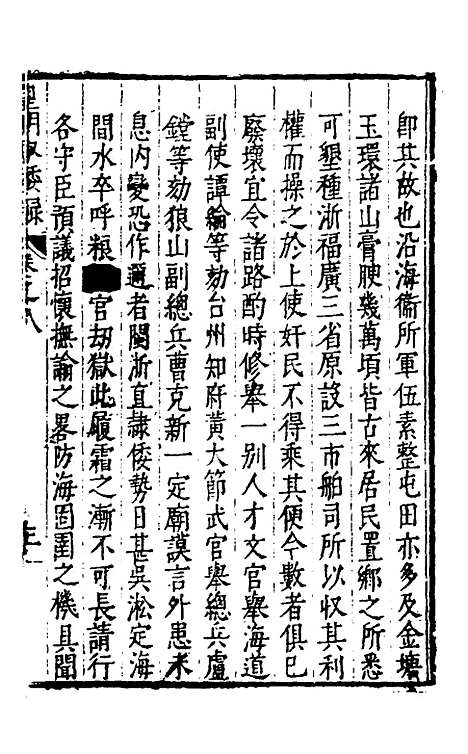 即其故也沿海衞所軍伍素整屯田亦多及金塘
玉環諸山膏腴幾萬頃皆古來居民置鄉之所悉
可墾種浙福廣三省原設三市舶司所以收其利
權而操之於上使奸民不得乘其便今數者俱已
廢壞宜令諸路酌時修舉一別人才文官舉海道
副使譚綸等劾台州知府黃大節武官舉總兵盧
鏜等劾狼山副總兵曹克新一定廟謨言外患未
息內變恐作邇者閩浙直隷倭勢日甚吳淞定海
間水卒呼糧官劫獄此履霜之漸不可長請行
各守臣預議招懷撫諭之畧防海固圉之機具聞
皇明馭倭錄 卷之八